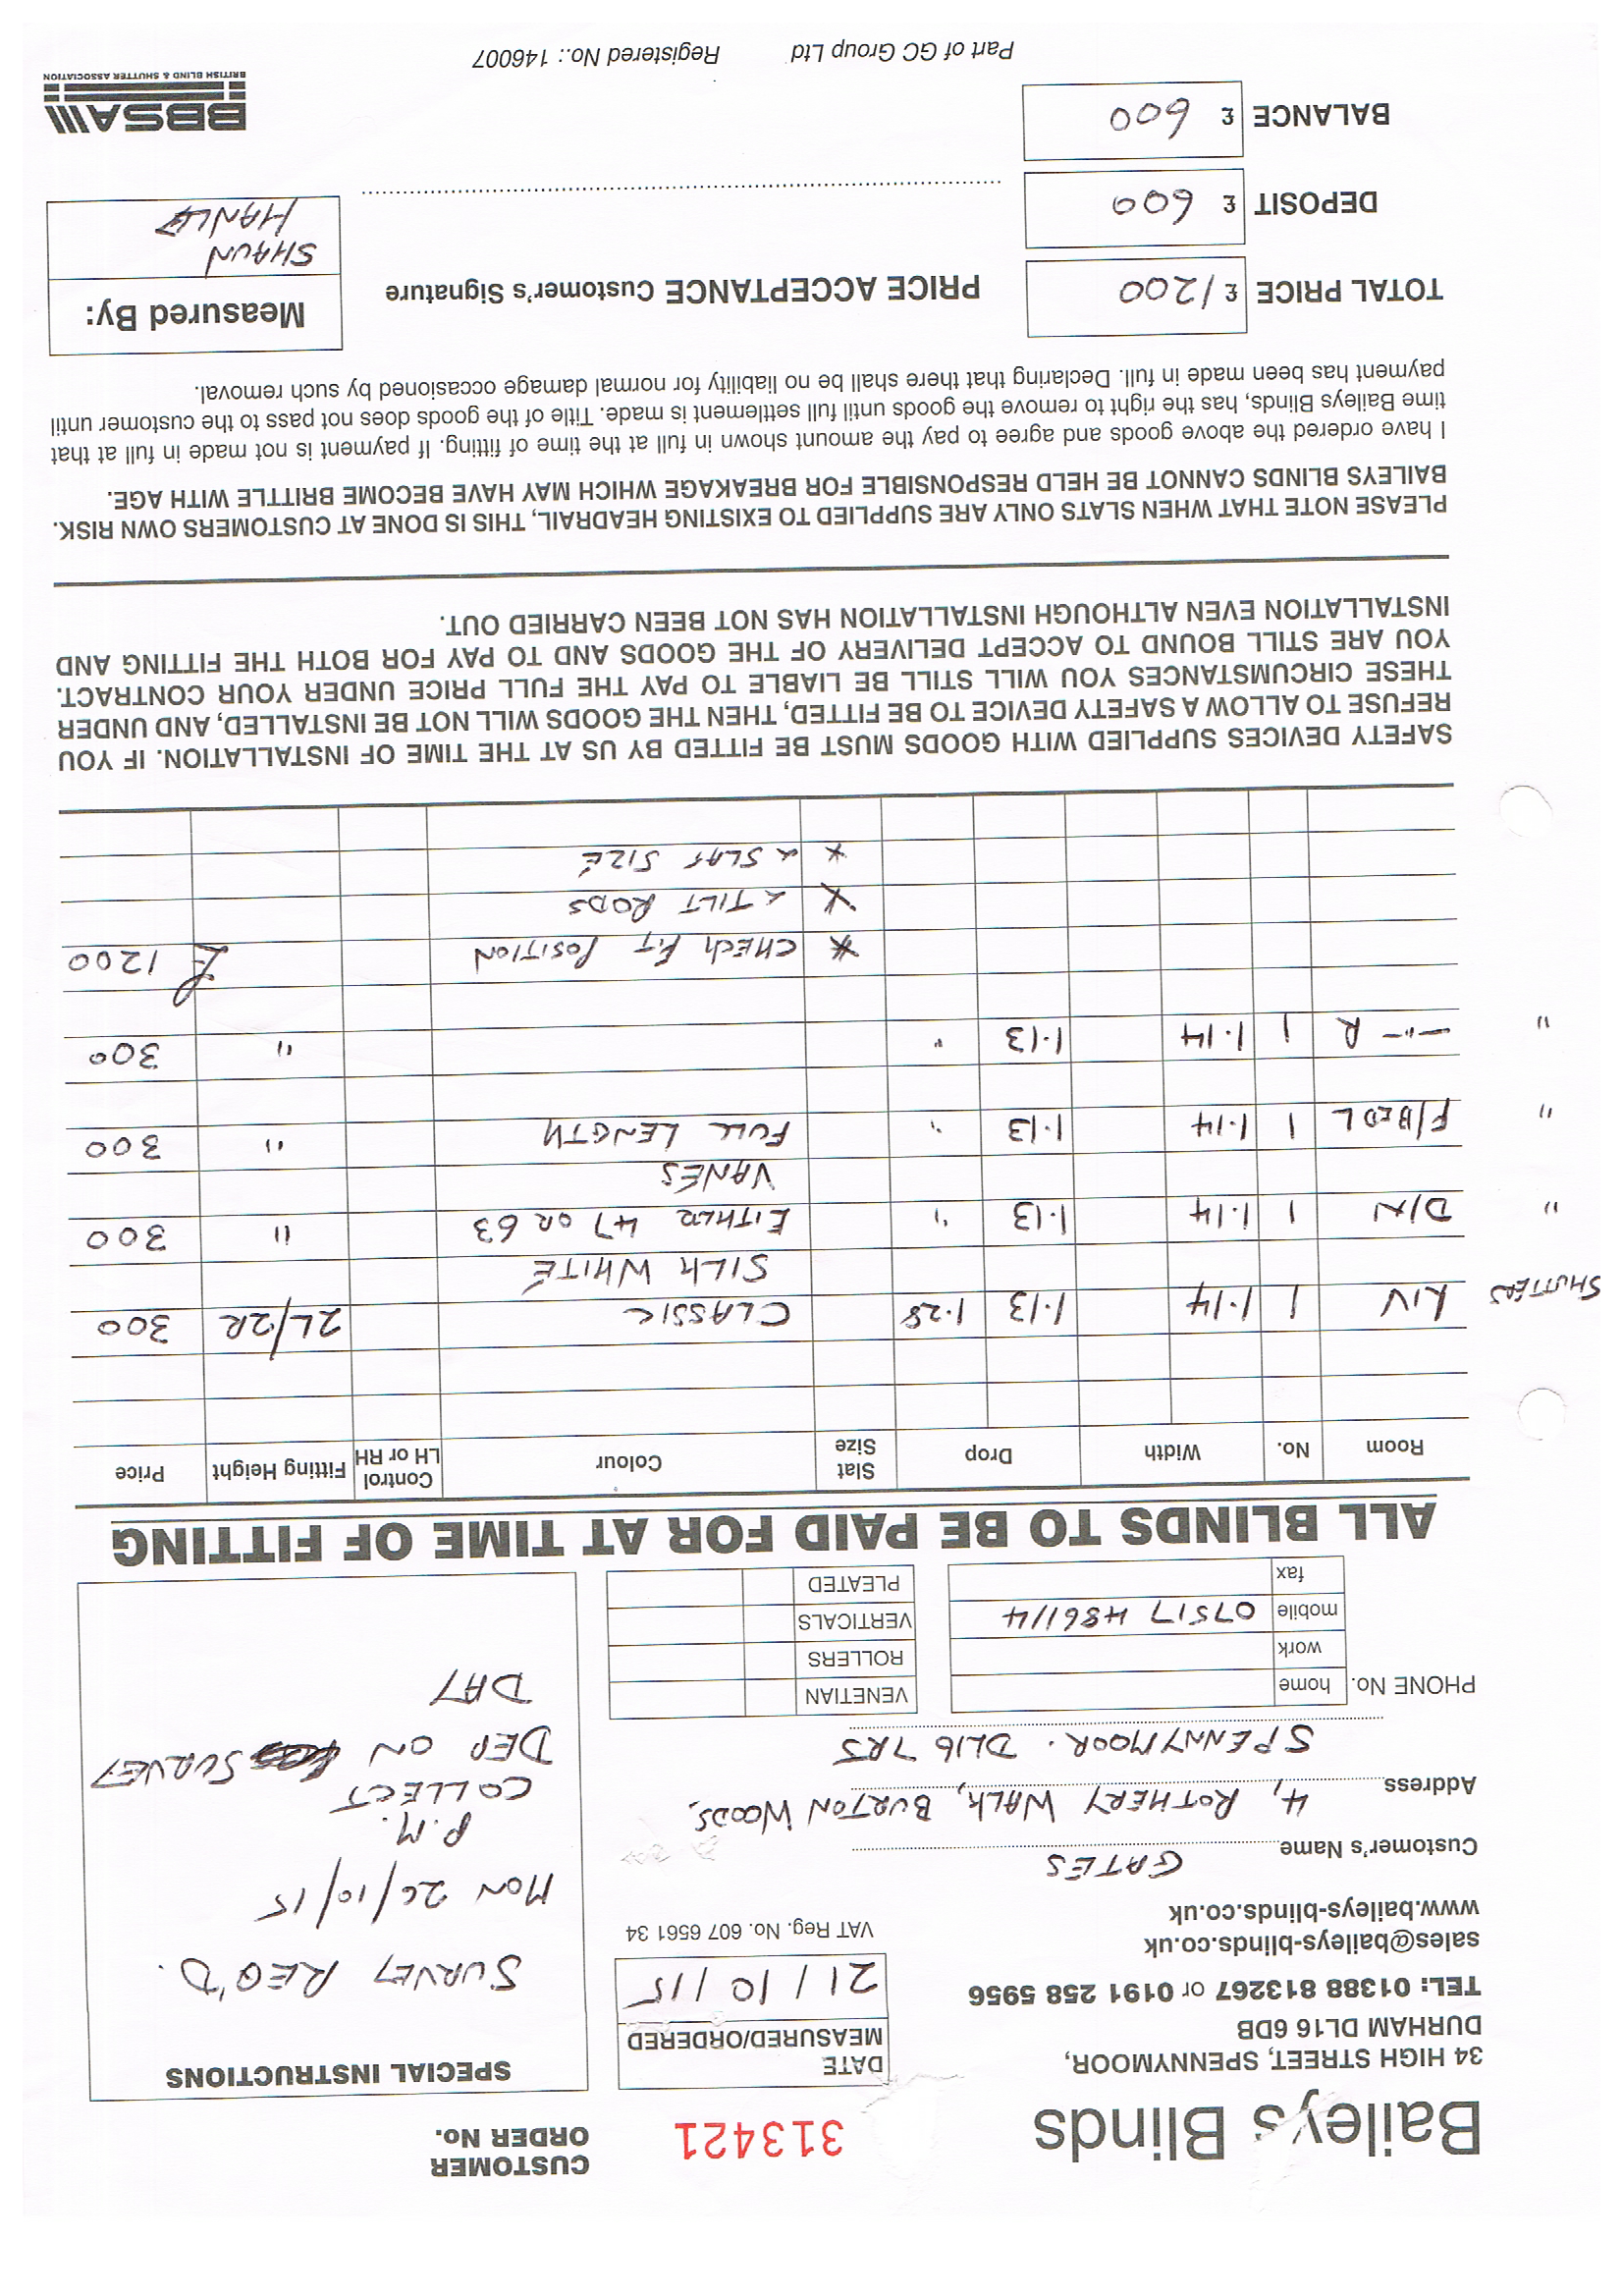 Baileys Blinds
34 HIGH STREET, SPENNYMOOR,
DURHAM DL16 6DB
TEL: 01388 813267 or 0191 258 5956
sales@baileys-blinds.co.uk
www.baileys-blinds.co.uk
313421
CUSTOMER
ORDER No.
DATE
MEASURED/ORDERED
21/10/15
VAT Reg. No. 607 6561 34
SPECIAL INSTRUCTIONS
SURVEY REQ'D.
MON 26/10/15
P.M.
COLLECT
DEP ON SURVEY
DAY
Customer's Name GATES
Address 4, ROTHERY WALK, BURTON WOODS,
SPENNYMOOR. DL16 7RS
PHONE No. home
work
mobile 07517 486114
fax
VENETIAN
ROLLERS
VERTICALS
PLEATED
ALL BLINDS TO BE PAID FOR AT TIME OF FITTING
Room No. Width Drop Slat Size Colour Control LH or RH Fitting Height Price
SHUTTERS LIV 1 1.14 1.13 1.28 CLASSIC 2L/2R 300
SILK WHITE
" DIN 1 1.14 1.13 " EITHER 47 OR 63 " 300
VANES
" F/BED L 1 1.14 1.13 " FULL LENGTH " 300
" —"— R 1 1.14 1.13 " " 300
* CHECK FIT POSITION £ 1200
* & TILT RODS
* & SLAT SIZE
SAFETY DEVICES SUPPLIED WITH GOODS MUST BE FITTED BY US AT THE TIME OF INSTALLATION. IF YOU
REFUSE TO ALLOW A SAFETY DEVICE TO BE FITTED, THEN THE GOODS WILL NOT BE INSTALLED, AND UNDER
THESE CIRCUMSTANCES YOU WILL STILL BE LIABLE TO PAY THE FULL PRICE UNDER YOUR CONTRACT.
YOU ARE STILL BOUND TO ACCEPT DELIVERY OF THE GOODS AND TO PAY FOR BOTH THE FITTING AND
INSTALLATION EVEN ALTHOUGH INSTALLATION HAS NOT BEEN CARRIED OUT.
PLEASE NOTE THAT WHEN SLATS ONLY ARE SUPPLIED TO EXISTING HEADRAIL, THIS IS DONE AT CUSTOMERS OWN RISK.
BAILEYS BLINDS CANNOT BE HELD RESPONSIBLE FOR BREAKAGE WHICH MAY HAVE BECOME BRITTLE WITH AGE.
I have ordered the above goods and agree to pay the amount shown in full at the time of fitting. If payment is not made in full at that
time Baileys Blinds, has the right to remove the goods until full settlement is made. Title of the goods does not pass to the customer until
payment has been made in full. Declaring that there shall be no liability for normal damage occasioned by such removal.
TOTAL PRICE £ 1200
DEPOSIT £ 600
BALANCE £ 600
PRICE ACCEPTANCE Customer's Signature
Measured By:
SHAUN
Part of GC Group Ltd Registered No.: 146007
BBSA
BRITISH BLIND & SHUTTER ASSOCIATION